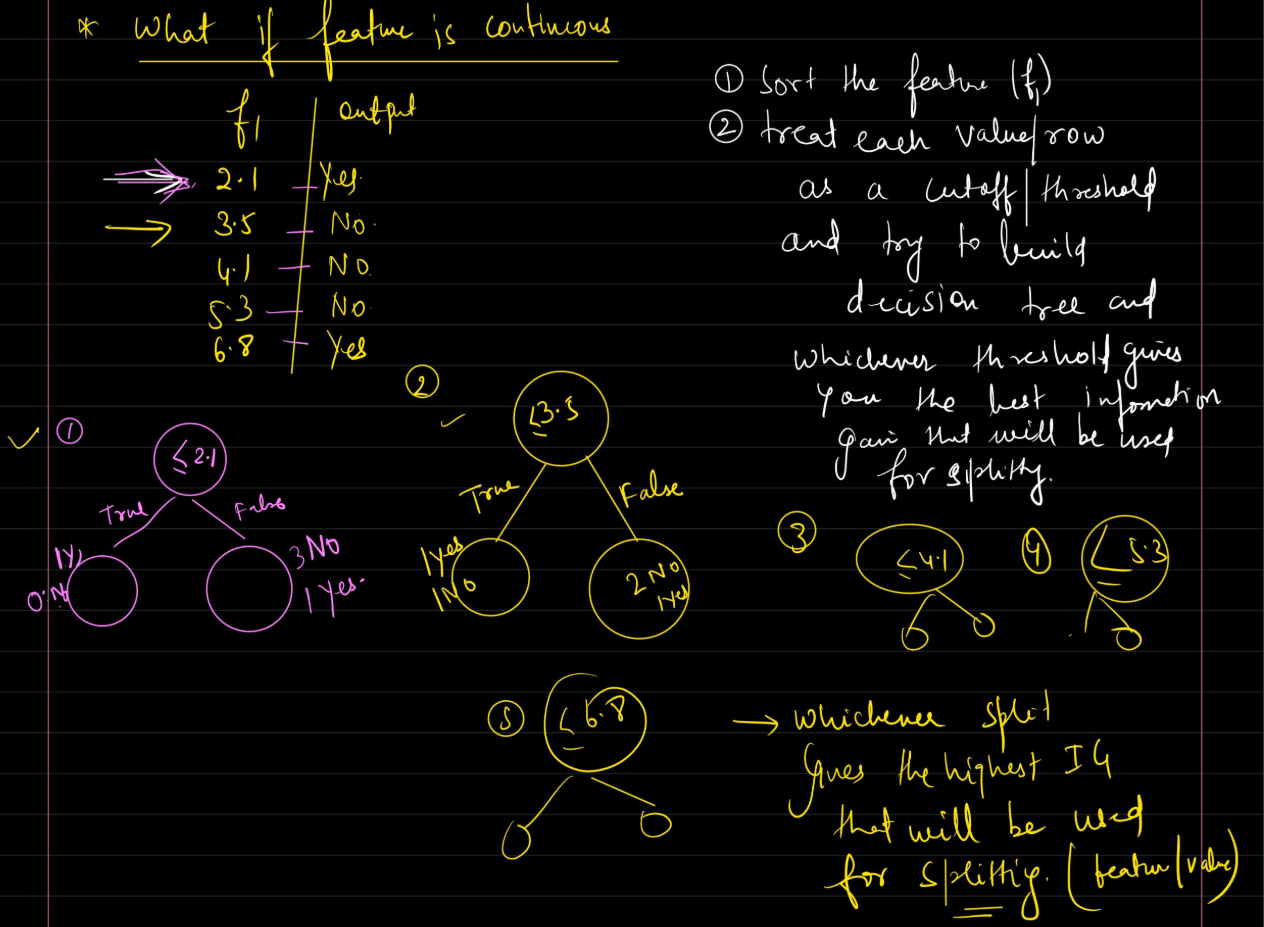 * What if feature is continuous
f1 | output
2.1 Yes
3.5 No.
4.1 NO.
5.3 No.
6.8 Yes
① Sort the feature (f1)
② treat each value/row
as a cutoff/threshold
and try to build
decision tree and
whichever threshold gives
you the best infomation
gain that will be used
for splitting.
✓ ①
≤ 2.1
True False
1Y, 3 NO
0:N 1 Yes.
② ✓
≤3.5
True False
1Yes 2 NO
1NO 1Yes
③ ≤4.1
④ ≤ 5.3
⑤ ≤ 6.8
→ whichever split
gives the highest IG
that will be used
for splitting. (feature/value)